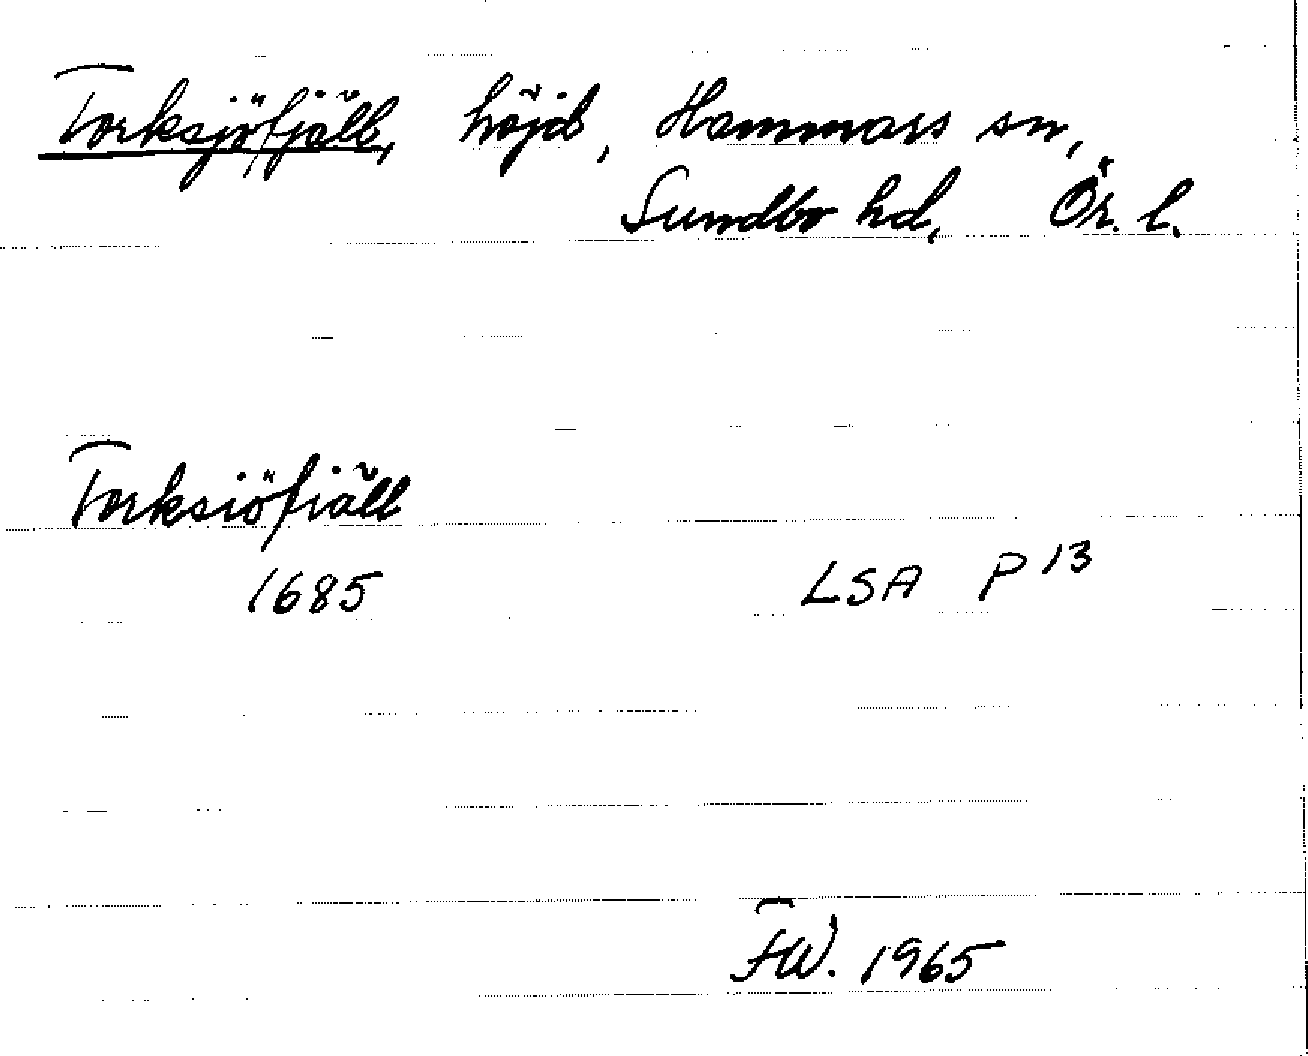 Torksjöfjäll, höjd, Hammars sn,
Sundbo hd, Ör. l.
Torksiöfiäll
1685 LSA P 13
F.W. 1965